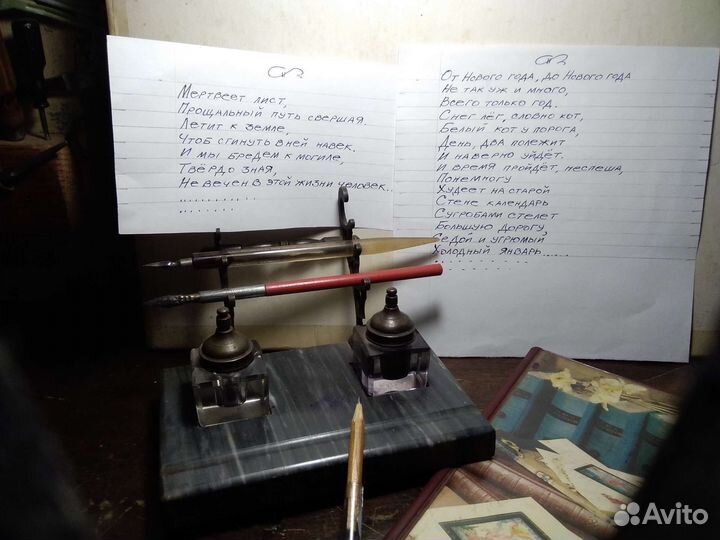 Мертвеет лист,
Прощальный путь свершая.
Летит к земле,
Чтоб сгинуть в ней навек.
И мы бредем к могиле,
Твёрдо зная,
Не вечен в этой жизни человек...
..............
.......
От Нового года, до Нового года
Не так уж и много,
Всего только год.
Снег лёг, словно кот,
Белый кот у порога,
День, два полежит
И наверно уйдёт.
И время пройдёт, неспеша,
Понемногу
Худеет на старой
Стене календарь
Сугробами стелет
Большую дорогу,
Седой и угрюмый
Холодный январь.....
. . . . . . . . . .
Avito